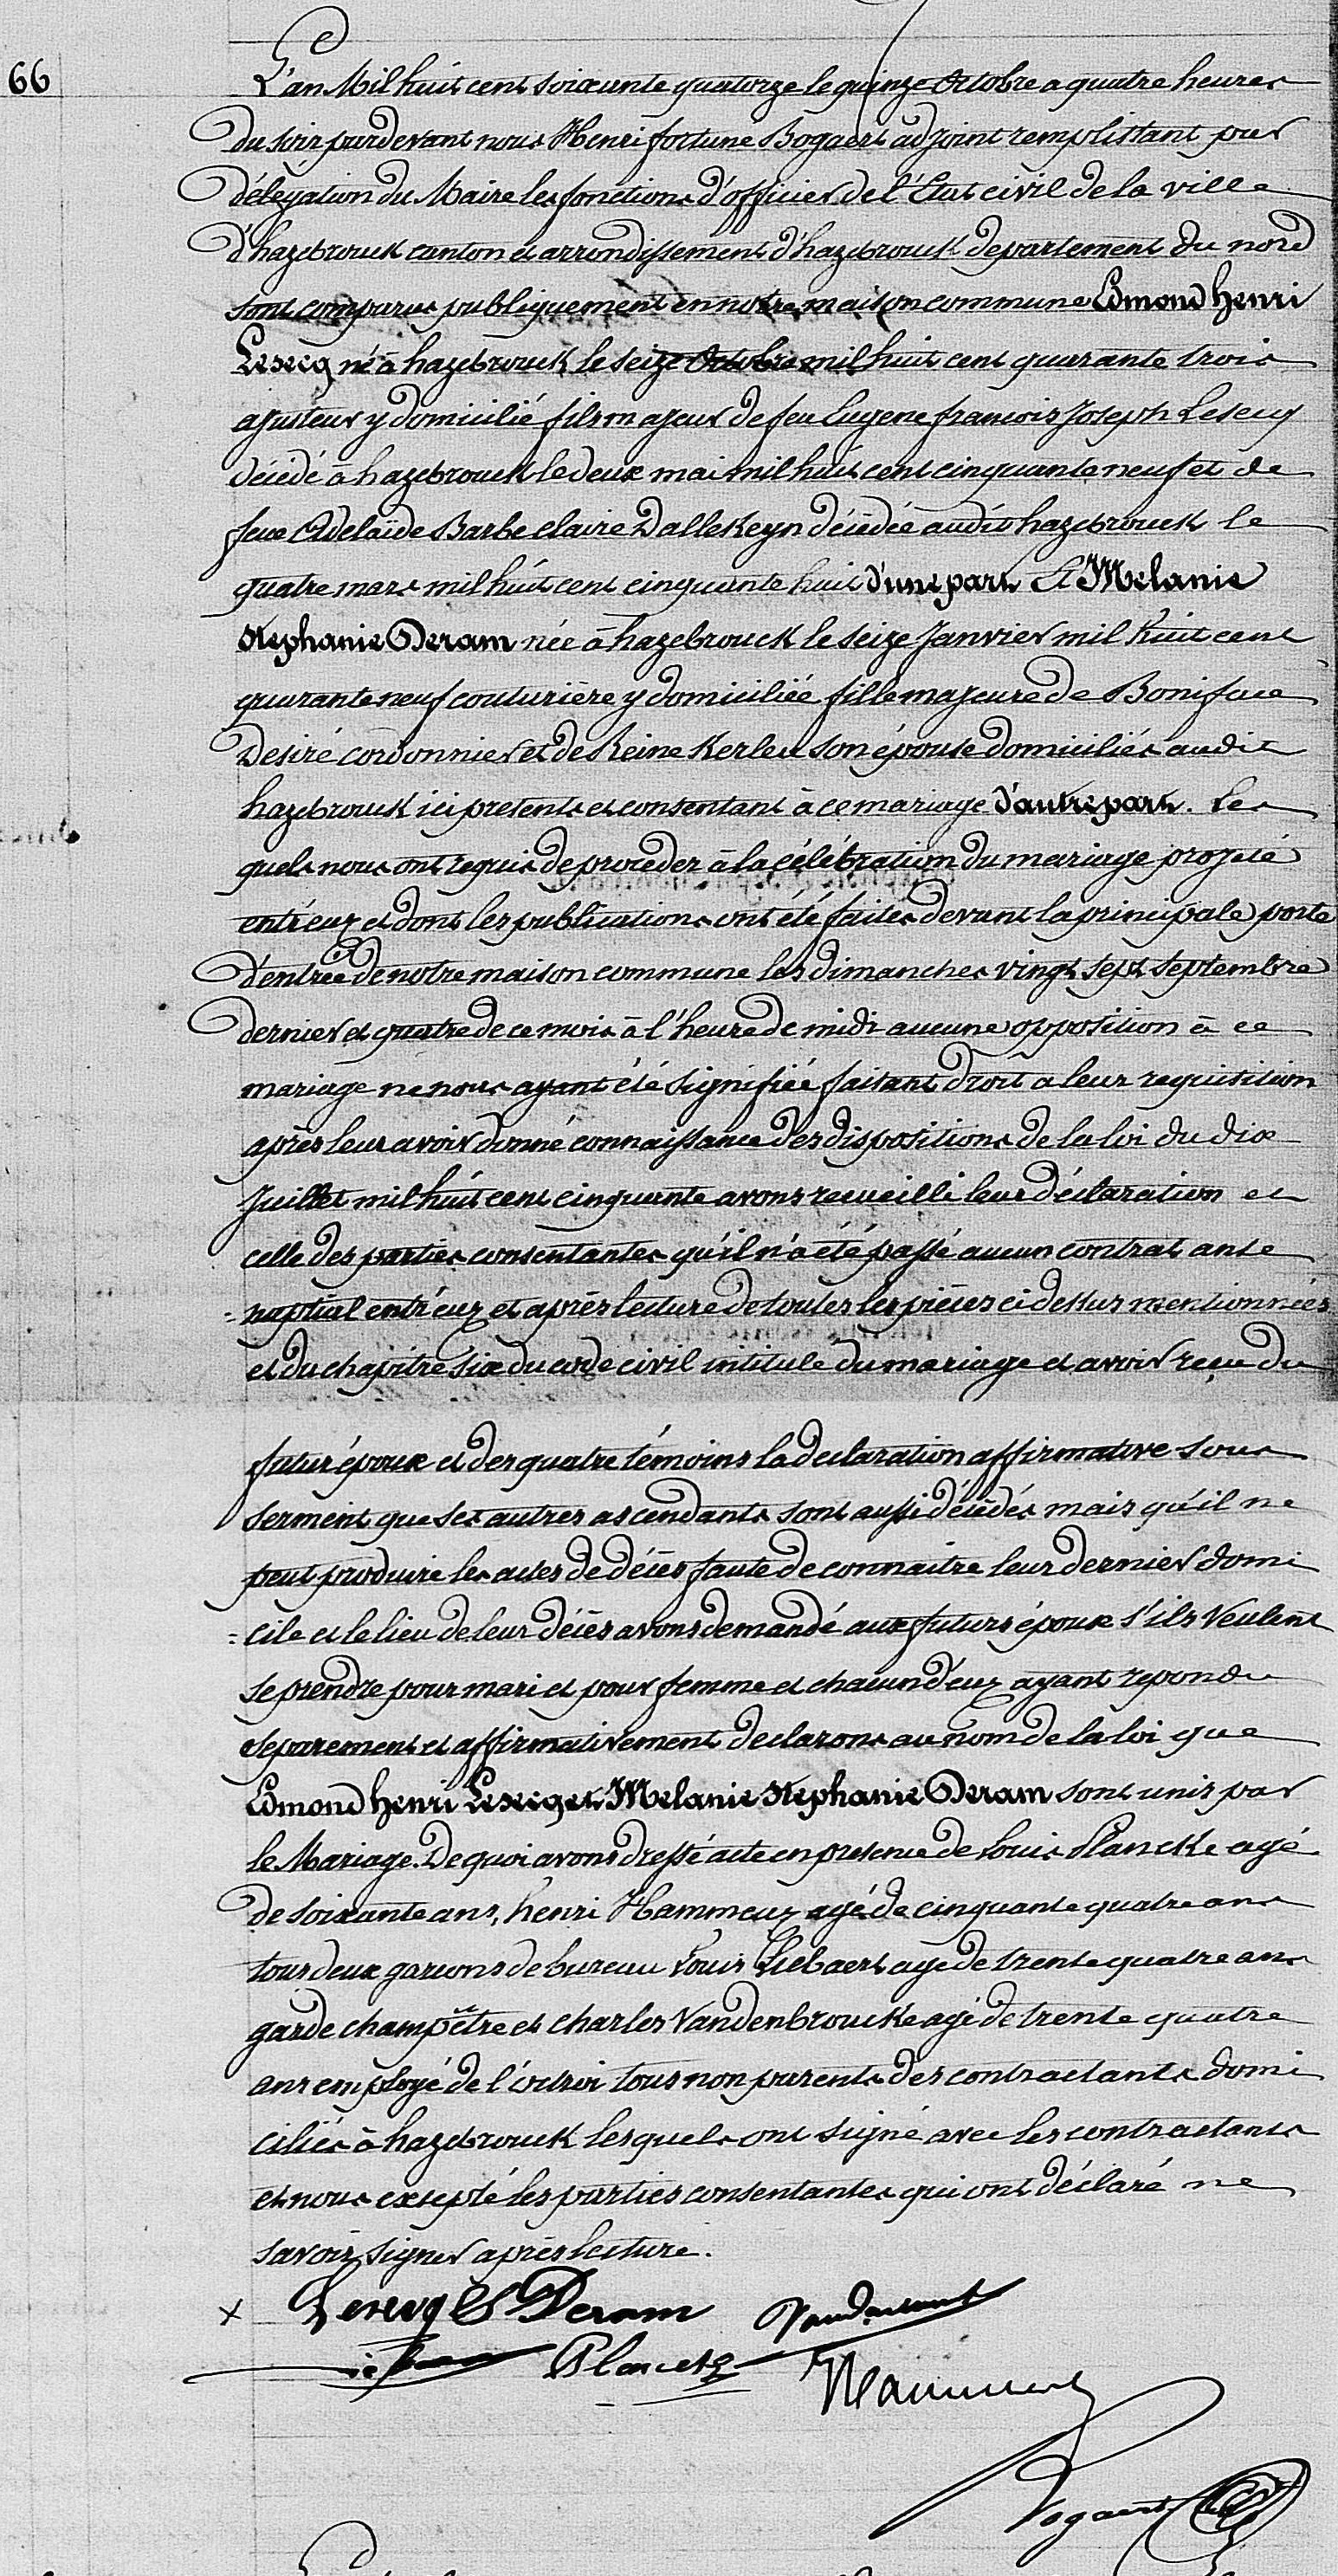 66
L'an Mil huit cent soixante quatorze le quinze Octobre a quatre heures
du soir pardevant nous Henri fortune Bogaert adjoint remplissant par
délégation du Maire les fonctions d'officier de l'État civil de la ville
d'hazebrouck canton et arrondissement d'hazebrouck departement du nord
sont comparus publiquement en notre maison commune Edmond henri
Lesecq né à hazebrouck le seize Octobre mil huit cent quarante trois
ajusteur y domicilié fils majeur de feu Eugene francois Joseph Lesecq
décédé à hazebrouck le deux mai mil huit cent cinquante neuf et de
feue Adelaïde Barbe Claire Dallekeyn décédée audit hazebrouck le
quatre mars mil huit cent cinquante huit d'une part Et Melanie
Stephanie Deram née à hazebrouck le seize Janvier mil huit cent
quarante neuf couturière y domiciliée fille majeure de Boniface
Desiré cordonnier et de Reine Kerleu son épouse domiciliés audit
hazebrouck ici presents et consentant à ce mariage d'autre part. Les
quels nous ont requis de proceder à la célébration du mariage projeté
entr'eux et dont les publications ont été faites devant la principale porte
d'entrée de notre maison commune les dimanches vingt sept septembre
dernier et quatre de ce mois à l'heure de midi aucune opposition à ce
mariage ne nous ayant été signifiée faisant droit a leur requisition
après leur avoir donné connaissance des dispositions de la loi du dix
Juillet mil huit cent cinquante avons recueilli leur déclaration et
celle des parties consentantes qu'il n'a été passé aucun contrat ante
=nuptial entr'eux et après lecture de toutes les pièces ci dessus mentionnées
et du chapitre six du code civil intitulé du mariage et avoir reçu du
futur époux et des quatre témoins la declaration affirmative sous
serment que ses autres ascendants sont aussi décédés mais qu'il ne
peut produire les actes de décès faute de connaitre leur dernier domi
=cile et le lieu de leur décès avons demandé aux futurs époux s'ils veulent
se prendre pour mari et pour femme et chacun d'eux ayant repondu
separement et affirmativement declarons au nom de la loi que
Edmond henri Lesecq et Melanie Stephanie Deram sont unis par
le Mariage. De quoi avons dressé acte en presence de Louis Plancke agé
de soixante ans, henri Hammeux agé de cinquante quatre ans
tous deux garcons de bureau Louis Liebaert agé de trente quatre ans
garde champêtre et charles Vandenbroucke agé de trente quatre
ans employé de l'octroi tous non parents des contractants domi
ciliés à hazebrouck lesquels ont signé avec les contractants
et nous excepté les parties consentantes qui ont déclaré ne
savoir signer après lecture.
x Lesecq E S Deram
Plancke
Bogaert